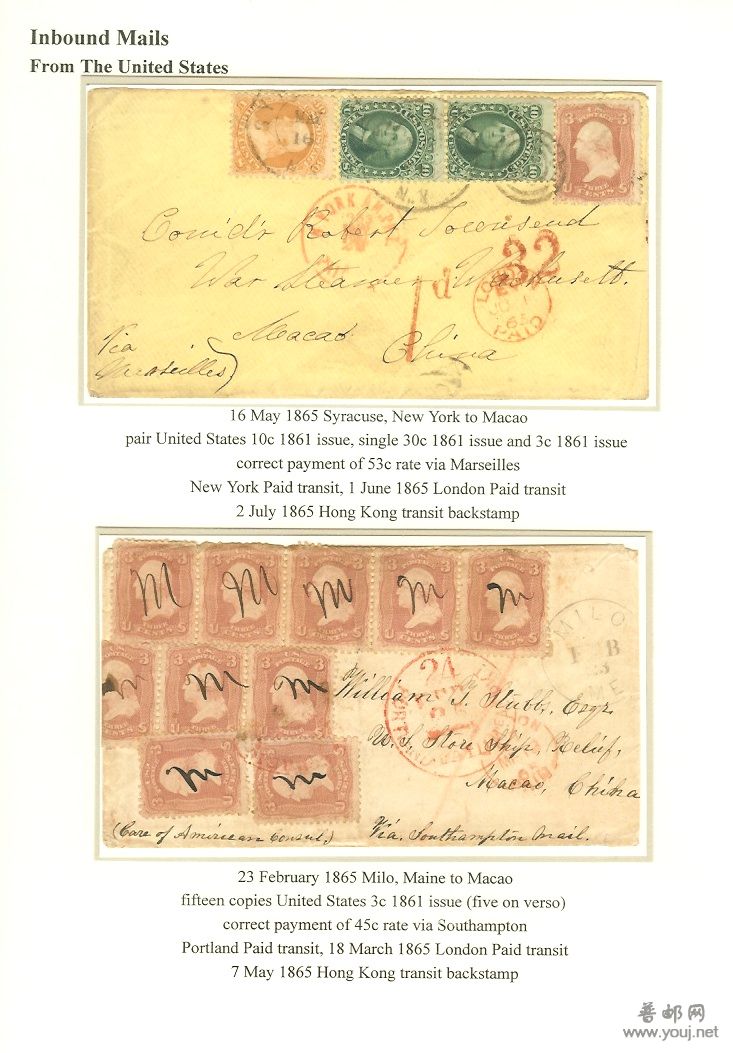 Inbound Mails
From The United States
30
10 U.S. POSTAGE 10
10 U.S. POSTAGE 10
U.S. POSTAGE
3 3
THREE CENTS
U S
16
N.Y.
Com'd'r Robert Townsend
32
War Steamer Wachusett.
1 d
LONDON
PAID
Macao
China
Via
Marseilles
16 May 1865 Syracuse, New York to Macao
pair United States 10c 1861 issue, single 30c 1861 issue and 3c 1861 issue
correct payment of 53c rate via Marseilles
New York Paid transit, 1 June 1865 London Paid transit
2 July 1865 Hong Kong transit backstamp
MILO
FEB
23
ME
24
William T. Stubbs, Esqr.
U.S. Store Ship, Relief,
Macao, China
(Care of American Consul,)
Via. Southampton mail.
23 February 1865 Milo, Maine to Macao
fifteen copies United States 3c 1861 issue (five on verso)
correct payment of 45c rate via Southampton
Portland Paid transit, 18 March 1865 London Paid transit
7 May 1865 Hong Kong transit backstamp
普邮网
www.youj.net